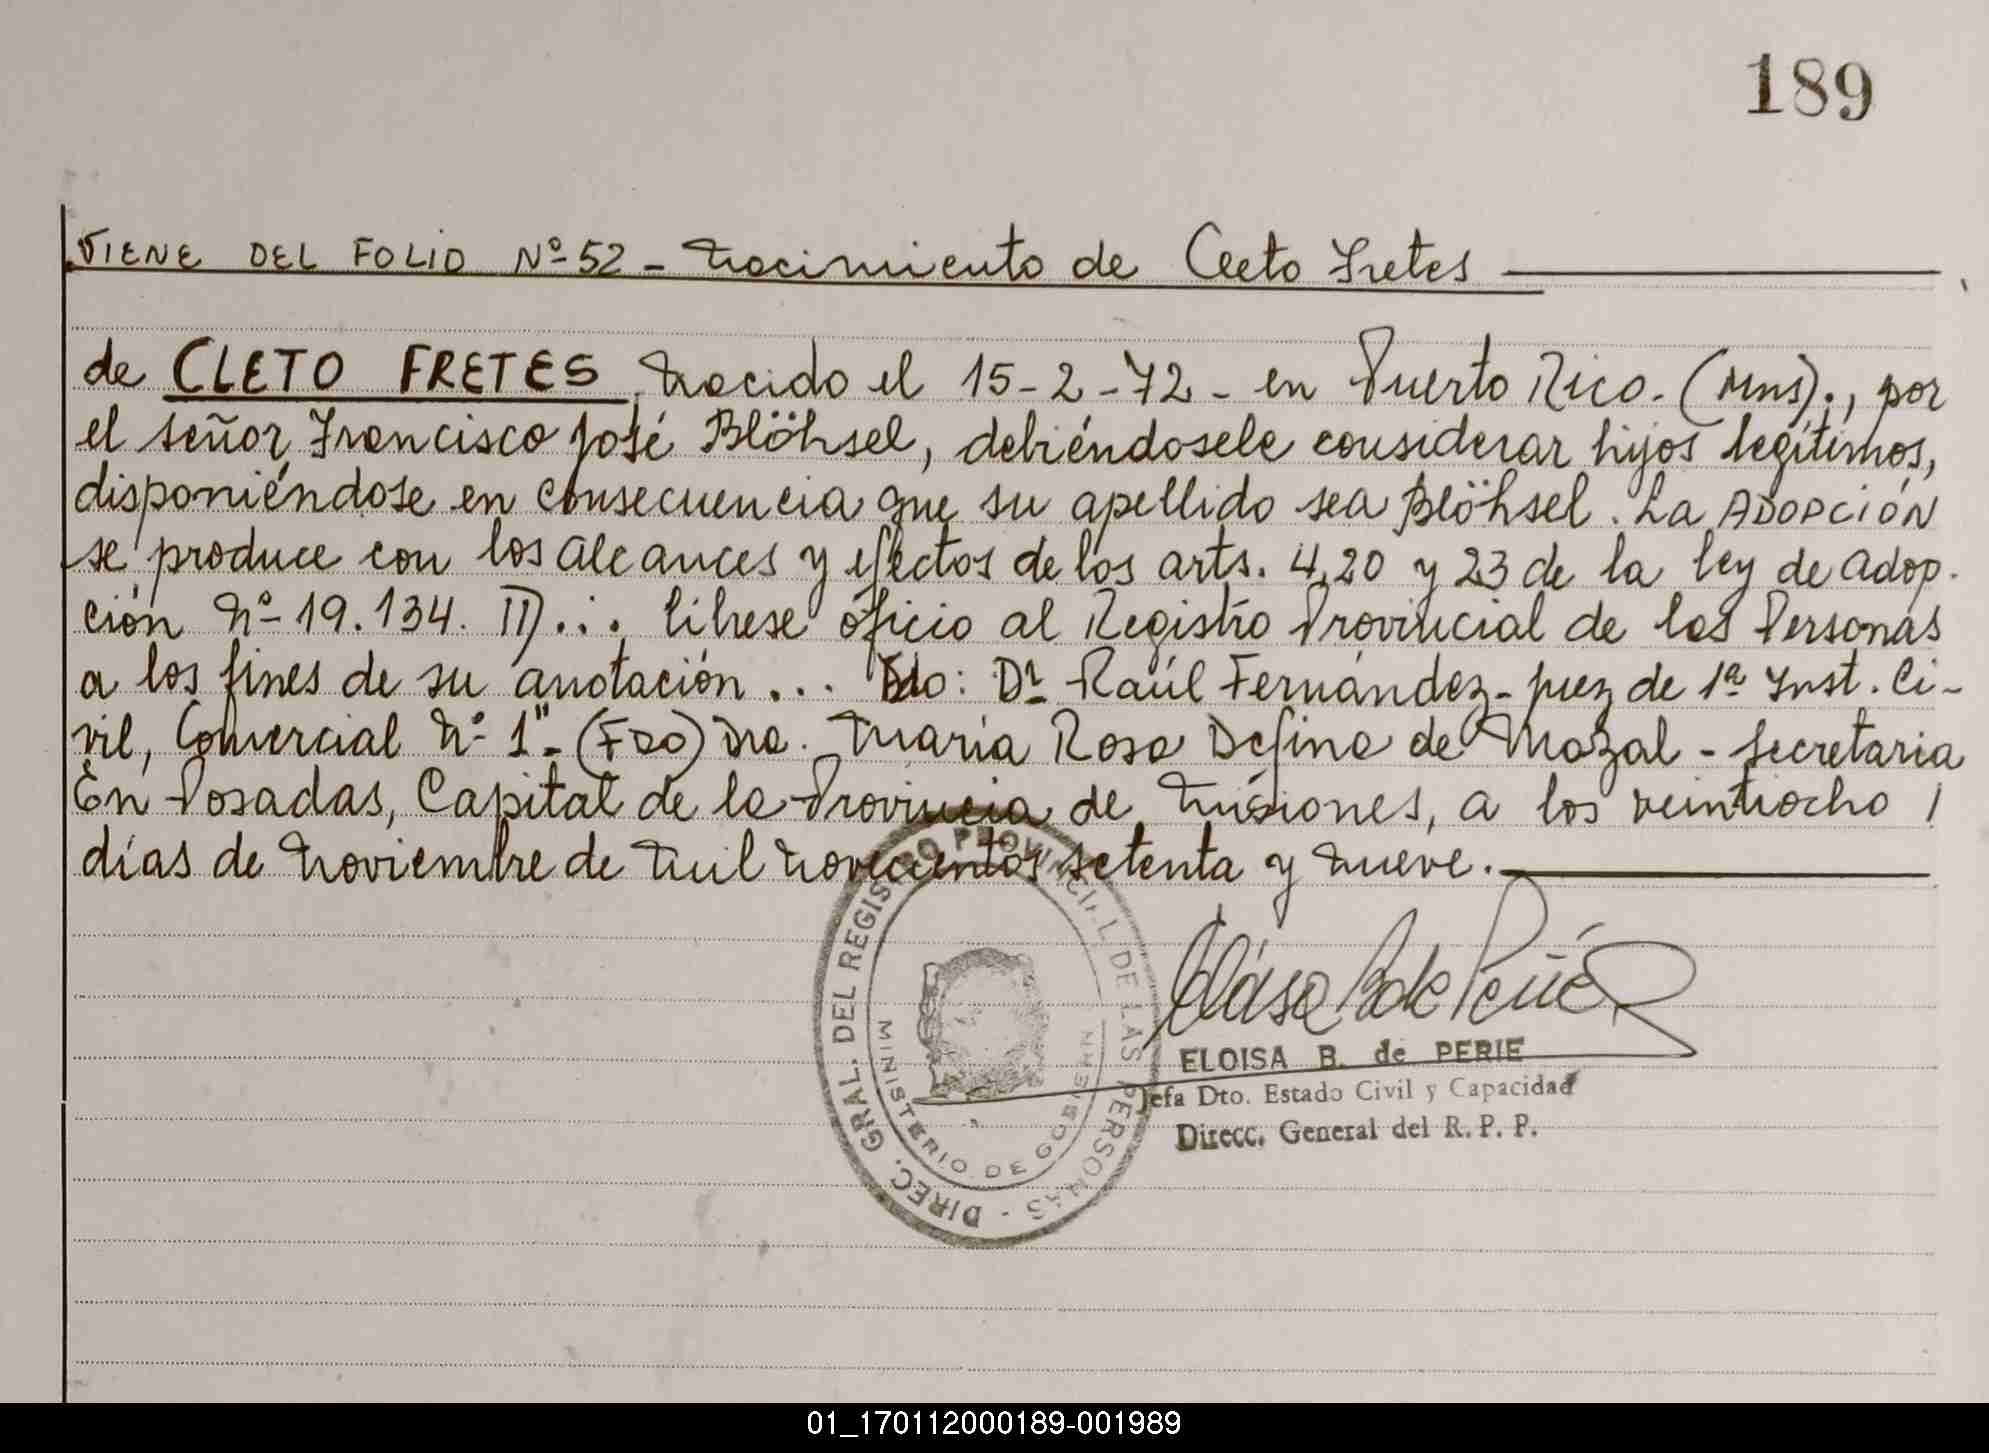 189
VIENE DEL FOLIO Nº 52 - Nacimiento de Cleto Fretes
de CLETO FRETES, Nacido el 15-2-72 - en Puerto Rico. (Mns)., por
el señor Francisco José Blöhsel, debiéndosele considerar hijos legítimos,
disponiéndose en consecuencia que su apellido sea Blöhsel. La ADOPCIÓN
se produce con los alcances y efectos de los arts. 4, 20 y 23 de la ley de adop-
ción Nº 19.134. II)... líbrese oficio al Registro Provincial de las Personas
a los fines de su anotación... Fdo: Dr Raúl Fernández - juez de 1ª Inst. Ci-
vil, Comercial Nº 1". (FDO) Dra. María Rosa Defina de Mazal - secretaria
En Posadas, Capital de la Provincia de Misiones, a los veintiocho /
días de Noviembre de mil novecientos setenta y nueve.
DIREC. GRAL. DEL REGISTRO PROVINCIAL DE LAS PERSONAS -
MINISTERIO DE GOBIERNO
ELOISA B. de PERIE
Jefa Dto. Estado Civil y Capacidad
Direcc. General del R. P. P.
01_170112000189-001989